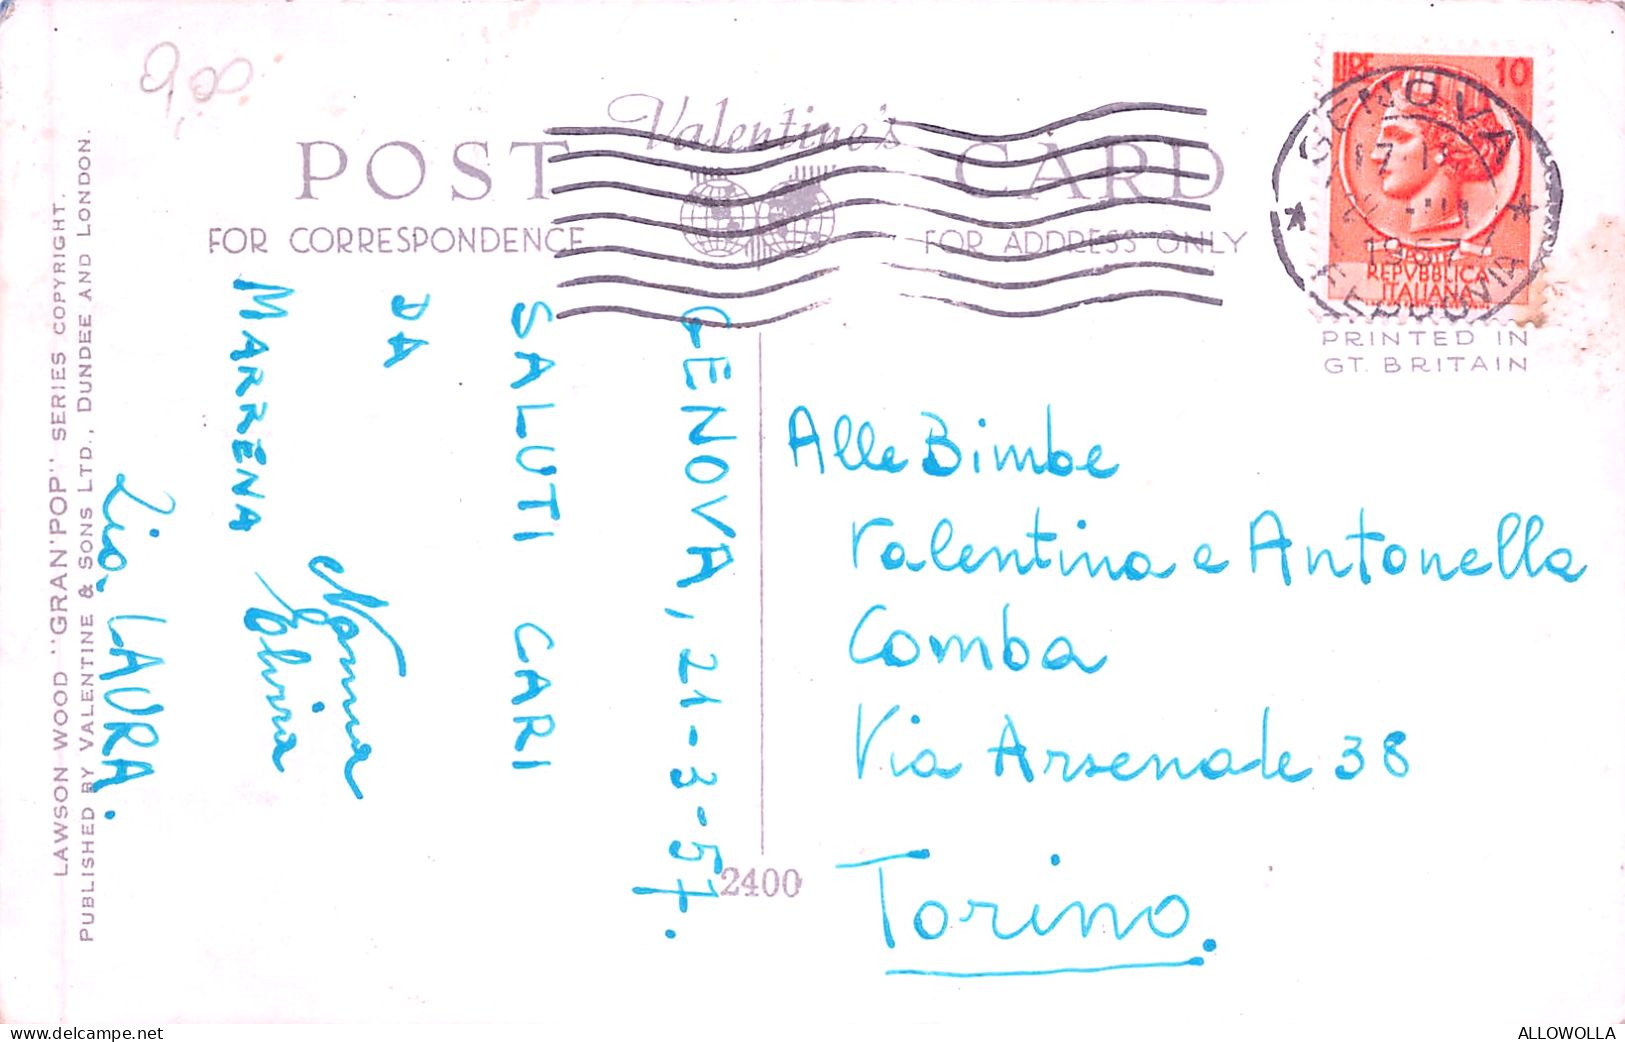 Valentine's
POST CARD
FOR CORRESPONDENCE
FOR ADDRESS ONLY
LIRE 10
REPVBBLICA
ITALIANA
GENOVA
FERROVIA
1957
PRINTED IN
GT. BRITAIN
GENOVA, 21-3-57.
SALUTI CARI
DA
MARRENA
Nonna
Elvira
Zia LAURA.
Alle Bimbe
Valentina e Antonella
Comba
Via Arsenale 38
Torino.
2400
LAWSON WOOD "GRAN'POP" SERIES COPYRIGHT.
PUBLISHED BY VALENTINE & SONS LTD., DUNDEE AND LONDON.
www.delcampe.net
ALLOWOLLA